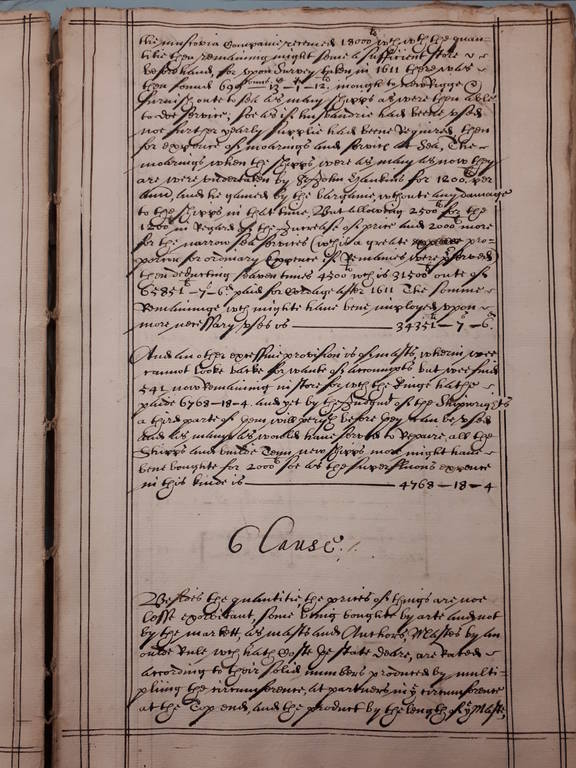 the muscovia Companie received 18000li wch wth the quan-
titie then remaining might seeme a sufficient store
before hand, for upon Survey taken in 1611 there was
then found 696 13 - 1 - 12 inough to
furnish oute to sea as many shipps as were then able
to doe service, soe as if husbandrie had beene used
noe further yearly supplie had beene Required, then
for expence of moorings and service at Sea, The
moorings when the shipps were as many as now they
are were undertaken by Sr John Haukins for 1200li per
ann, and he gained by the bargaine, without any damage
to the shipps in that time, But allowing 2500li for the
1200 in Regard of the Increase of price and 2000li more
for the narrow sea services (which is a greate pro-
portion for ordinary Expence if Remaines were served
then deducting seaven times 4500li wch is 31500li oute of
65851li - 7s - 6d paid for Cordage after 1611 The somme
Remaininge wch mighte have bene imployed upon
more necessary uses is 34351li - 7s - 6d
And an other excessive provision is of masts, wherin wee
cannot looke backe for wante of accompts but wee find
541 now Remaining in store for wch the Kinge hathe
paide 6768 - 18 - 4 and yet by the Judgmt of the Shipwrights
a third parte of them will perish before they can be used
and as many as would have served to Repaire, all the
Shipps and builde Tenn new shipps more might have
bene boughte for 2000li soe as the superfluous expence
in this kinde is 4768 - 18 - 4
6 Cause.
Besides the quantitie the prices of things are noe
lesse exorbitant, some being boughte by arte and not
by the markett, as masts and Anchors, Mastes by an
oulde Rule wch hath Coste the state deare, are Rated
according to their solid numbers produced by multi-
pliing the circumference, at partners in ye circumference
at the Top end, and the product by the length of ye Maste,